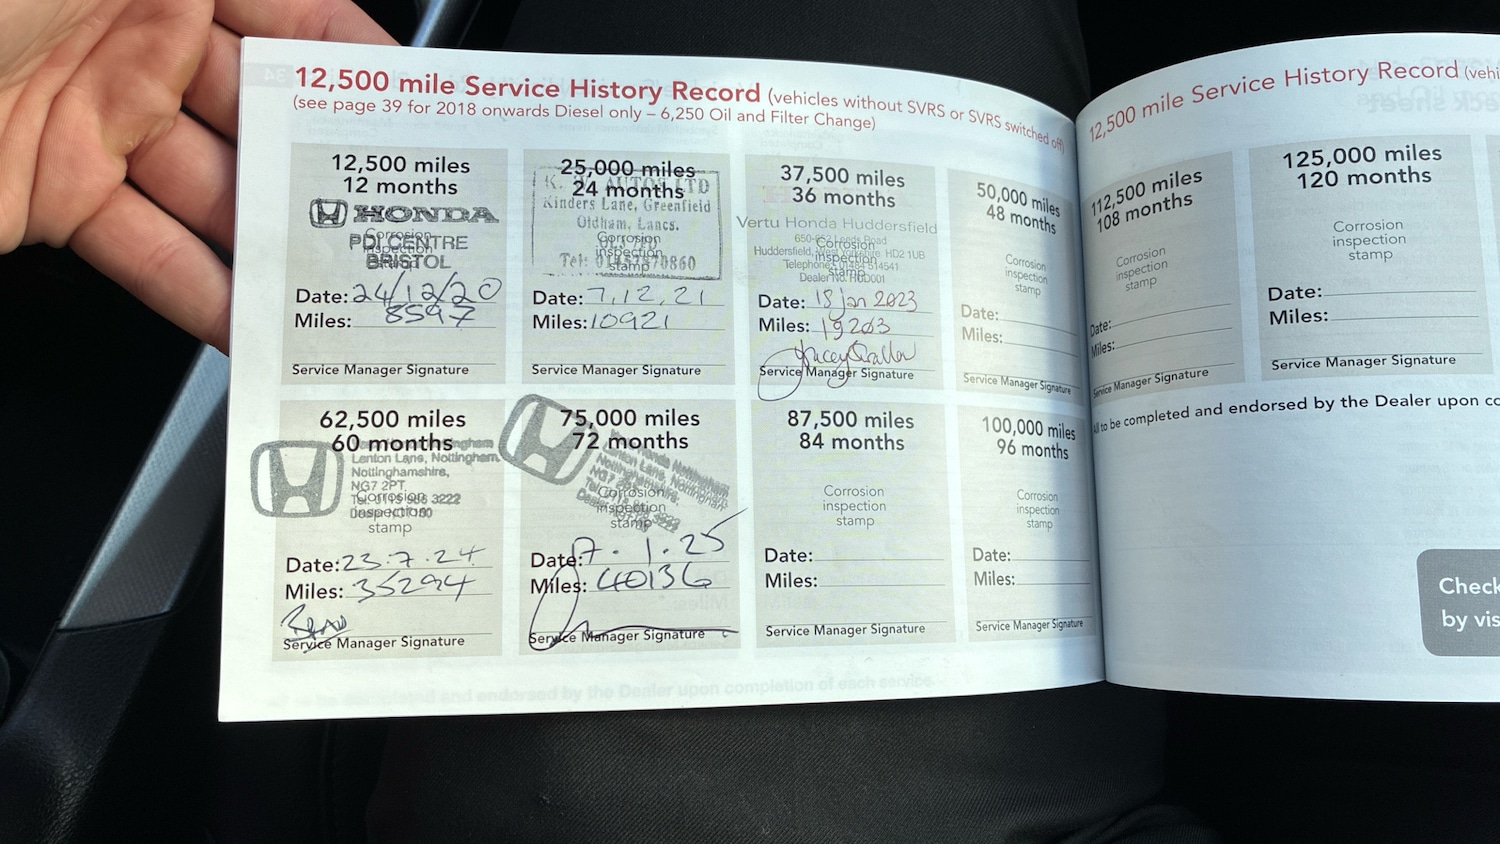 12,500 mile Service History Record (vehicles without SVRS or SVRS switched off)
(see page 39 for 2018 onwards Diesel only – 6,250 Oil and Filter Change)
12,500 miles
12 months
HONDA
Corrosion
inspection
PDI CENTRE
BRISTOL
Date: 24/12/20
Miles: 8597
Service Manager Signature
25,000 miles
24 months
K. AUTOS LTD
Kinders Lane, Greenfield
Oldham, Lancs.
Corrosion
inspection
stamp
Date: 7.12.21
Miles: 10921
Service Manager Signature
37,500 miles
36 months
Vertu Honda Huddersfield
Corrosion
inspection
stamp
Huddersfield, HD2 1UB
Telephone: 514541
Dealer No. HUD001
Date: 18 Jan 2023
Miles: 19203
Service Manager Signature
50,000 miles
48 months
Corrosion
inspection
stamp
Date:
Miles:
Service Manager Signature
62,500 miles
60 months
Lenton Lane, Nottingham,
Nottinghamshire,
NG7 2PT
3222
Corrosion
inspection
stamp
Date: 23.7.24
Miles: 35294
Service Manager Signature
75,000 miles
72 months
Honda Nottingham
Lenton Lane, Nottingham
Nottinghamshire,
NG7
Corrosion
inspection
stamp
Date: 7.1.25
Miles: 40136
Service Manager Signature
87,500 miles
84 months
Corrosion
inspection
stamp
Date:
Miles:
Service Manager Signature
100,000 miles
96 months
Corrosion
inspection
stamp
Date:
Miles:
Service Manager Signature
12,500 mile Service History Record (vehi
112,500 miles
108 months
Corrosion
inspection
stamp
Date:
Miles:
Service Manager Signature
125,000 miles
120 months
Corrosion
inspection
stamp
Date:
Miles:
Service Manager Signature
All to be completed and endorsed by the Dealer upon co
Check
by vis